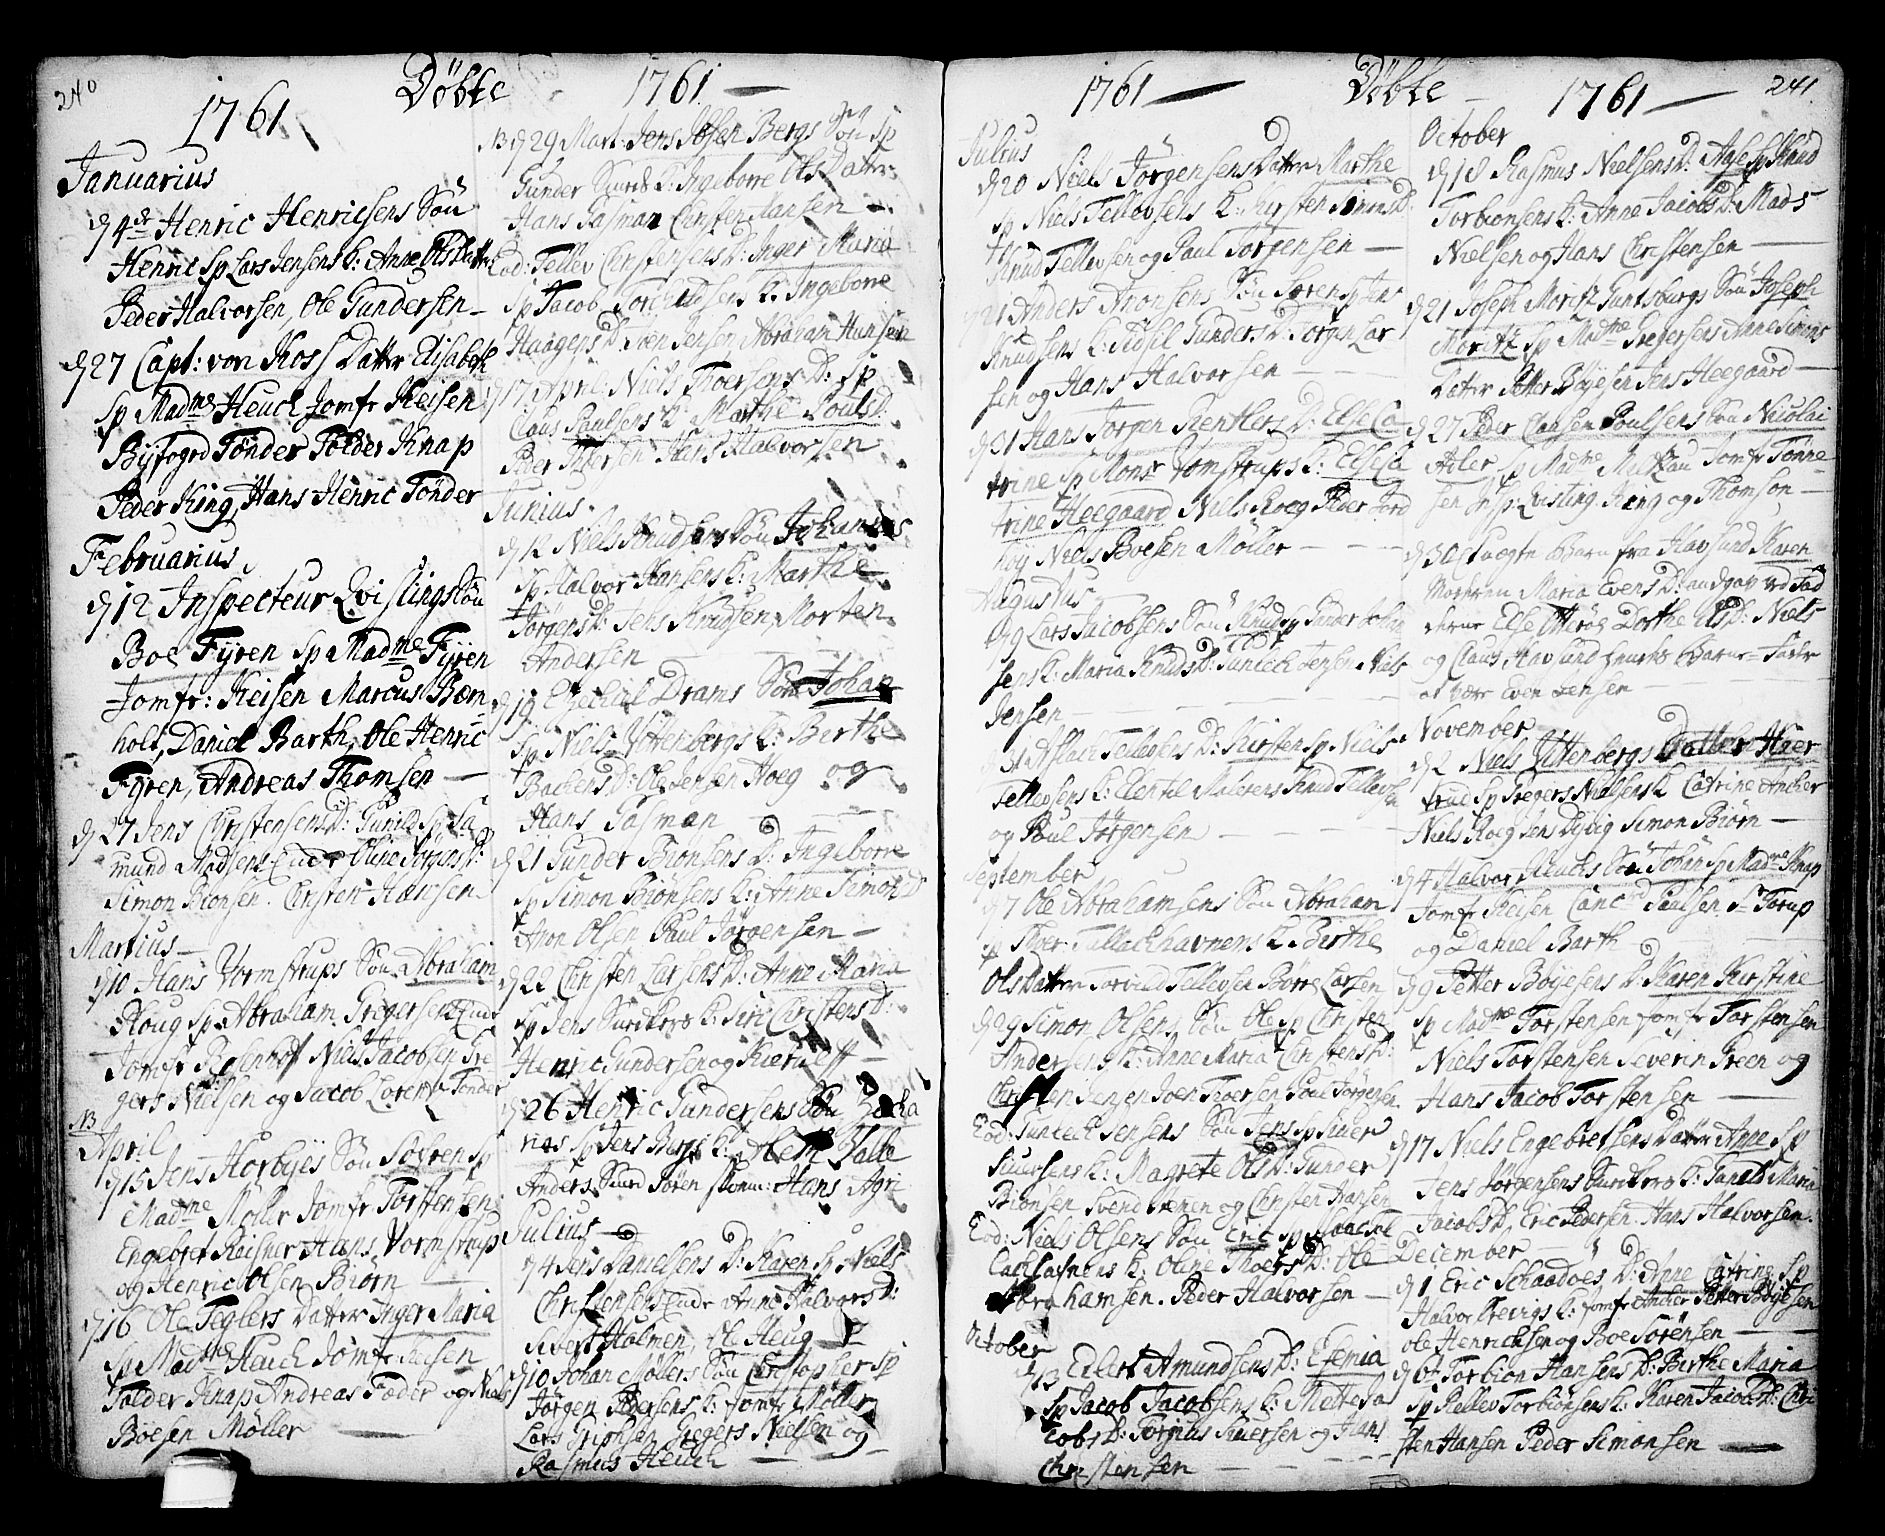 240
Döbte
1761
1761
Januarius
d 4de Henric Henricsens Sön
Henric Sp Lars Jensens K: Anne Ols Datter
Peder Halvorsen, Ole Gundersen
d 27 Capt: von Koss Datter Elisabeth
Sp Madme Heuch Jomfr Keisen
Byfogd Tönder Polder Knap
Peder King, Hans Henric Tönder
Februarius
d 12 Inspecteur Qvislings Sön
Boe Fÿren Sp Madme Fÿren
Jomfr: Keisen Marcus Bærn
holt, Daniel Barth, Ole Henric
Fÿren, Andreas Thomsen
d 27 Jens Christensens D: Gunild Sp
mund Madsens Oline Jörgens D:
Simon Bionsen. Christen Hansen
Martius
d 10 Hans Vormstrups Sön Abraham
Ploug Sp Abraham Gregersens
Jomfr Rosenhof Niels Jacobsen Gre
gers Nielsen og Jacob Lorent Tönder
NB
April
d 15 Jens Horbyes Sön Sövren Sp
Madme Möller Jomfr Torstensen
Engebret Reisner Hans Vormstrup
og Henric Olsen Biörn
d 16 Ole Teglers Datter Inger Maria
Sp Madme Heuch Jomfr Keisen
Polder Knap Andreas Fæder og Niels
Boesen Möller
NB d 29 Mart: Jens Ibsen Bergs Sön Sp
Gunder K: Ingeborre Ols Datter
Hans Gasman Christen Hansen
Eod: Tellev Christensens D: Inger Maria
Sp Jacob K: Ingeborre
Haagens D: Joen Jensen Abraham Hansen
d 17 April: Niels Thoersens D: Sp
Claus Paulsens K: Marthe Pouls D:
Peder Ibsersen Hans Halvorsen
Junius
d 12 Niels Knudsens Sön Johannes
Sp Halvor Hansens K: Marthe
Jörgens D: Jens Knudsen, Morten
Andersen
d 19 Ezechiel Drams Sön Johan
Sp Niels Vittenbergs K: Berthe
Bachens D: Ole Jensen Hoeg og
Hans Gasman
d 21 Gunder Bionsens D: Ingeborre
Sp Simon Biönsens K: Anne Simons D
Aron Olsen Paul Jörgensen
d 22 Christen Larsens D: Anne Maria
Sp Jens K: Siri Christens D:
Henric Gundersen og Kierulff
d 26 Henric Gundersens Sön Zacha
rias Sp Jens K: Falle
Anders Sören Hans Agri
Julius
d 4 Jens Danielsens D: Karen Sp Niels
Christensens Anne Halvors D:
Sivert Holmen, Ole Heug
d 10 Johan Möllers Sön Christopher Sp
Jörgen Pedersens K: Jomfr Möller
Lars Gregers Nielsen og
Rasmus Heuch
1761
Döbte
1761
241
Julius
d 20 Niels Jörgensens Datter Marthe
Sp Niels Tellevsens K: Kirsten Simons D:
Knud Tellevsen og Paul Jörgensen
d 21 Anders Aronsens Sön Sören Sp Jens
Knudsens K: Sidsil Gunders D: Jörgen Lar
sen og Hans Halvorsen
d 31 Hans Jörgen Kentlers D: Else Ca
trine Sp Monsr Vomstrups K: Else Ca
trine Heegaard Niels Roeg Peder Jord
höy Niels Boesen Möller
Augustus
d 9 Lars Jacobsens Sön Knud Sp Gunder Johan
sens K: Maria Knuds D: Jens Niels
Jensen
d 31 Aslach Tellevsens D: Kirsten Sp Niels
Tellevsens K: Knud Tellevsen
og Poul Jörgensen
September
d 7 Ole Abrahamsens Sön Abraham
Sp Thoer Tallachhavnens K: Berthe
Ols Datter Torvild Tellevsen Börre Larsen
d 29 Simon Olsens Sön Ole Sp Christen
Andersens K: Anne Maria Christens D:
Christen Jensen Joen Thoersen Poul Jörgensen
Eod: Jensens Sön Jens Sp Siver
Siversens K: Magrete Ols D: Gunder
Bionsen Svend og Christen Hansen
Eod: Niels Olsens Sön Eric Sp
K: Oline Thoers D: Ole
Abrahamsen. Peder Halvorsen
October
d 13 Edlert Amundsens D: Efemia
Sp Jacob Jacobsens K: Mette Ja
cobs D: Torgius Siversen og Hans
Christensen
October
d 18 Rasmus Nielsens D: Aase Sp Knud
Torbionsens K: Anne Jacobs D: Mads
Nielsen og Hans Christensen
d 21 Joseph Moritz Guntsburgs Sön Joseph
Moritz Sp Madme Gregersens Anne Simons
Datter Petter Böyesen Jens Heegaard
d 27 Peder Clausen Poulsens Sön Nicolai
Adler Sp Madme Jomfr Tönne
sen Hr Insp: Qvisling King og Thomson
d 30 et uægte Barn fra Havsund Karen
Moderen Maria Evens D: udgav ved Fad
derne Else Dorthe Ols D: Niels
og Claus Havsund Barne Fader
at være Even Jensen
November
d 2 Niels Vittenbergs Datter Haer
frud Sp Gregers Nielsens K Catrine Ancher
Niels Roeg Jens Dyvig Simon Biörn
d 4 Halvor Heuchs Sön Johan Sp Madme Knap
Jomfr Keisen Canc: Paulsen Sr Torup
og Daniel Barth
d 9 Petter Böyesens D: Karen Kirstine
Sp Madme Torstensen Jomfr Torstensen
Niels Torstensen Severin Green og
Hans Jacob Torstensen
d 17 Niels Engebretsens Datter Anne Sp
Jens Jörgensens K: Maria
Jacobs D, Eric Pedersen. Hans Halvorsen.
December
d 1 Eric Schaadoes D: Anne Catrine Sp
Halvor Brevigs K: Jomfr Ancher Petter Böyesen
Ole Henrichsen og Boe Sörensen
d 6 Torbion Hansens D: Berthe Maria
Sp Rellev Torbiönsens K: Karen Jacobs D: Chri
sten Hansen Peder Simonsen